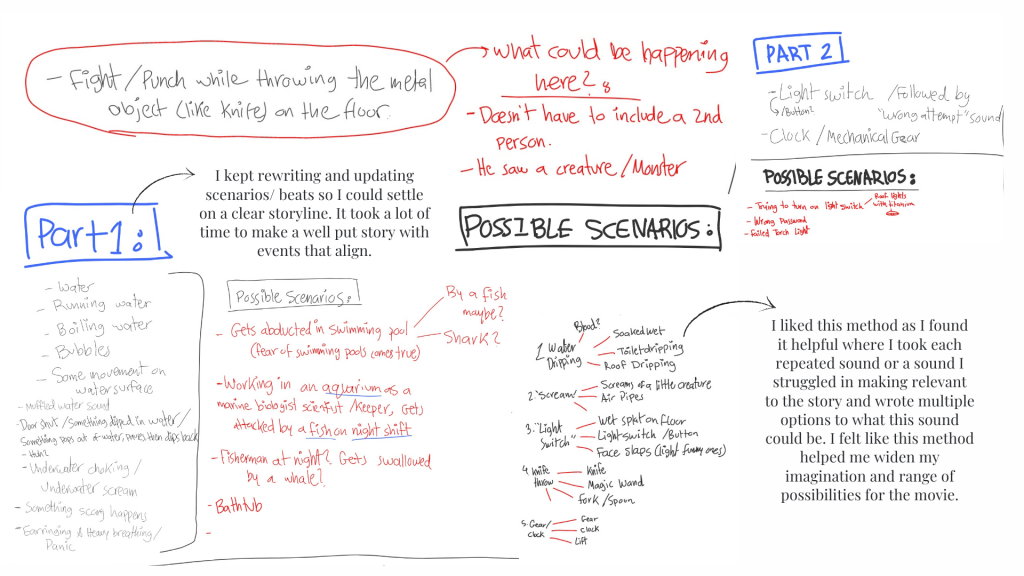 - Fight / Punch while throwing the metal
object (like Knife) on the floor.
what could be happening
here?
- Doesn't have to include a 2nd
person.
- He saw a creature / Monster
PART 2
- Light switch / Followed by
/Button? "wrong attempt" sound
- Clock / Mechanical Gear
POSSIBLE SCENARIOS:
- Trying to turn on light switch
Roof lights
with
- Wrong Password
- Failed Torch Light
I kept rewriting and updating
scenarios/ beats so I could settle
on a clear storyline. It took a lot of
time to make a well put story with
events that align.
Part 1:
POSSIBLE SCENARIOS:
- Water
- Running water
- Boiling water
- Bubbles
- Some movement on
water surface
- Muffled water sound
- Door shut / Something dipped in water /
Something pops out of water, moves then dips back
- Huh?
- Underwater choking /
Underwater scream
- Something scary happens
- Earringing & Heavy breathing /
Panic
Possible Scenarios:
- Gets abducted in swimming pool
(fear of swimming pools comes true)
By a fish
maybe?
Shark?
- Working in an aquarium as a
marine biologist scientist / Keeper, Gets
attacked by a fish on night shift
- Fisherman at night? Gets swallowed
by a whale?
- Bathtub
-
1. Water
Dripping
Blood?
Soaked wet
Toilet dripping
Roof Dripping
2. "Scream"
Screams of a little creature
Air Pipes
3. "Light
Switch"
Wet splat on floor
Light switch / Button
Face slaps (light funny ones)
4. Knife
throw
Knife
Magic Wand
fork / Spoon
5. Gear/
clock
Gear
clock
Lift
I liked this method as I found
it helpful where I took each
repeated sound or a sound I
struggled in making relevant
to the story and wrote multiple
options to what this sound
could be. I felt like this method
helped me widen my
imagination and range of
possibilities for the movie.